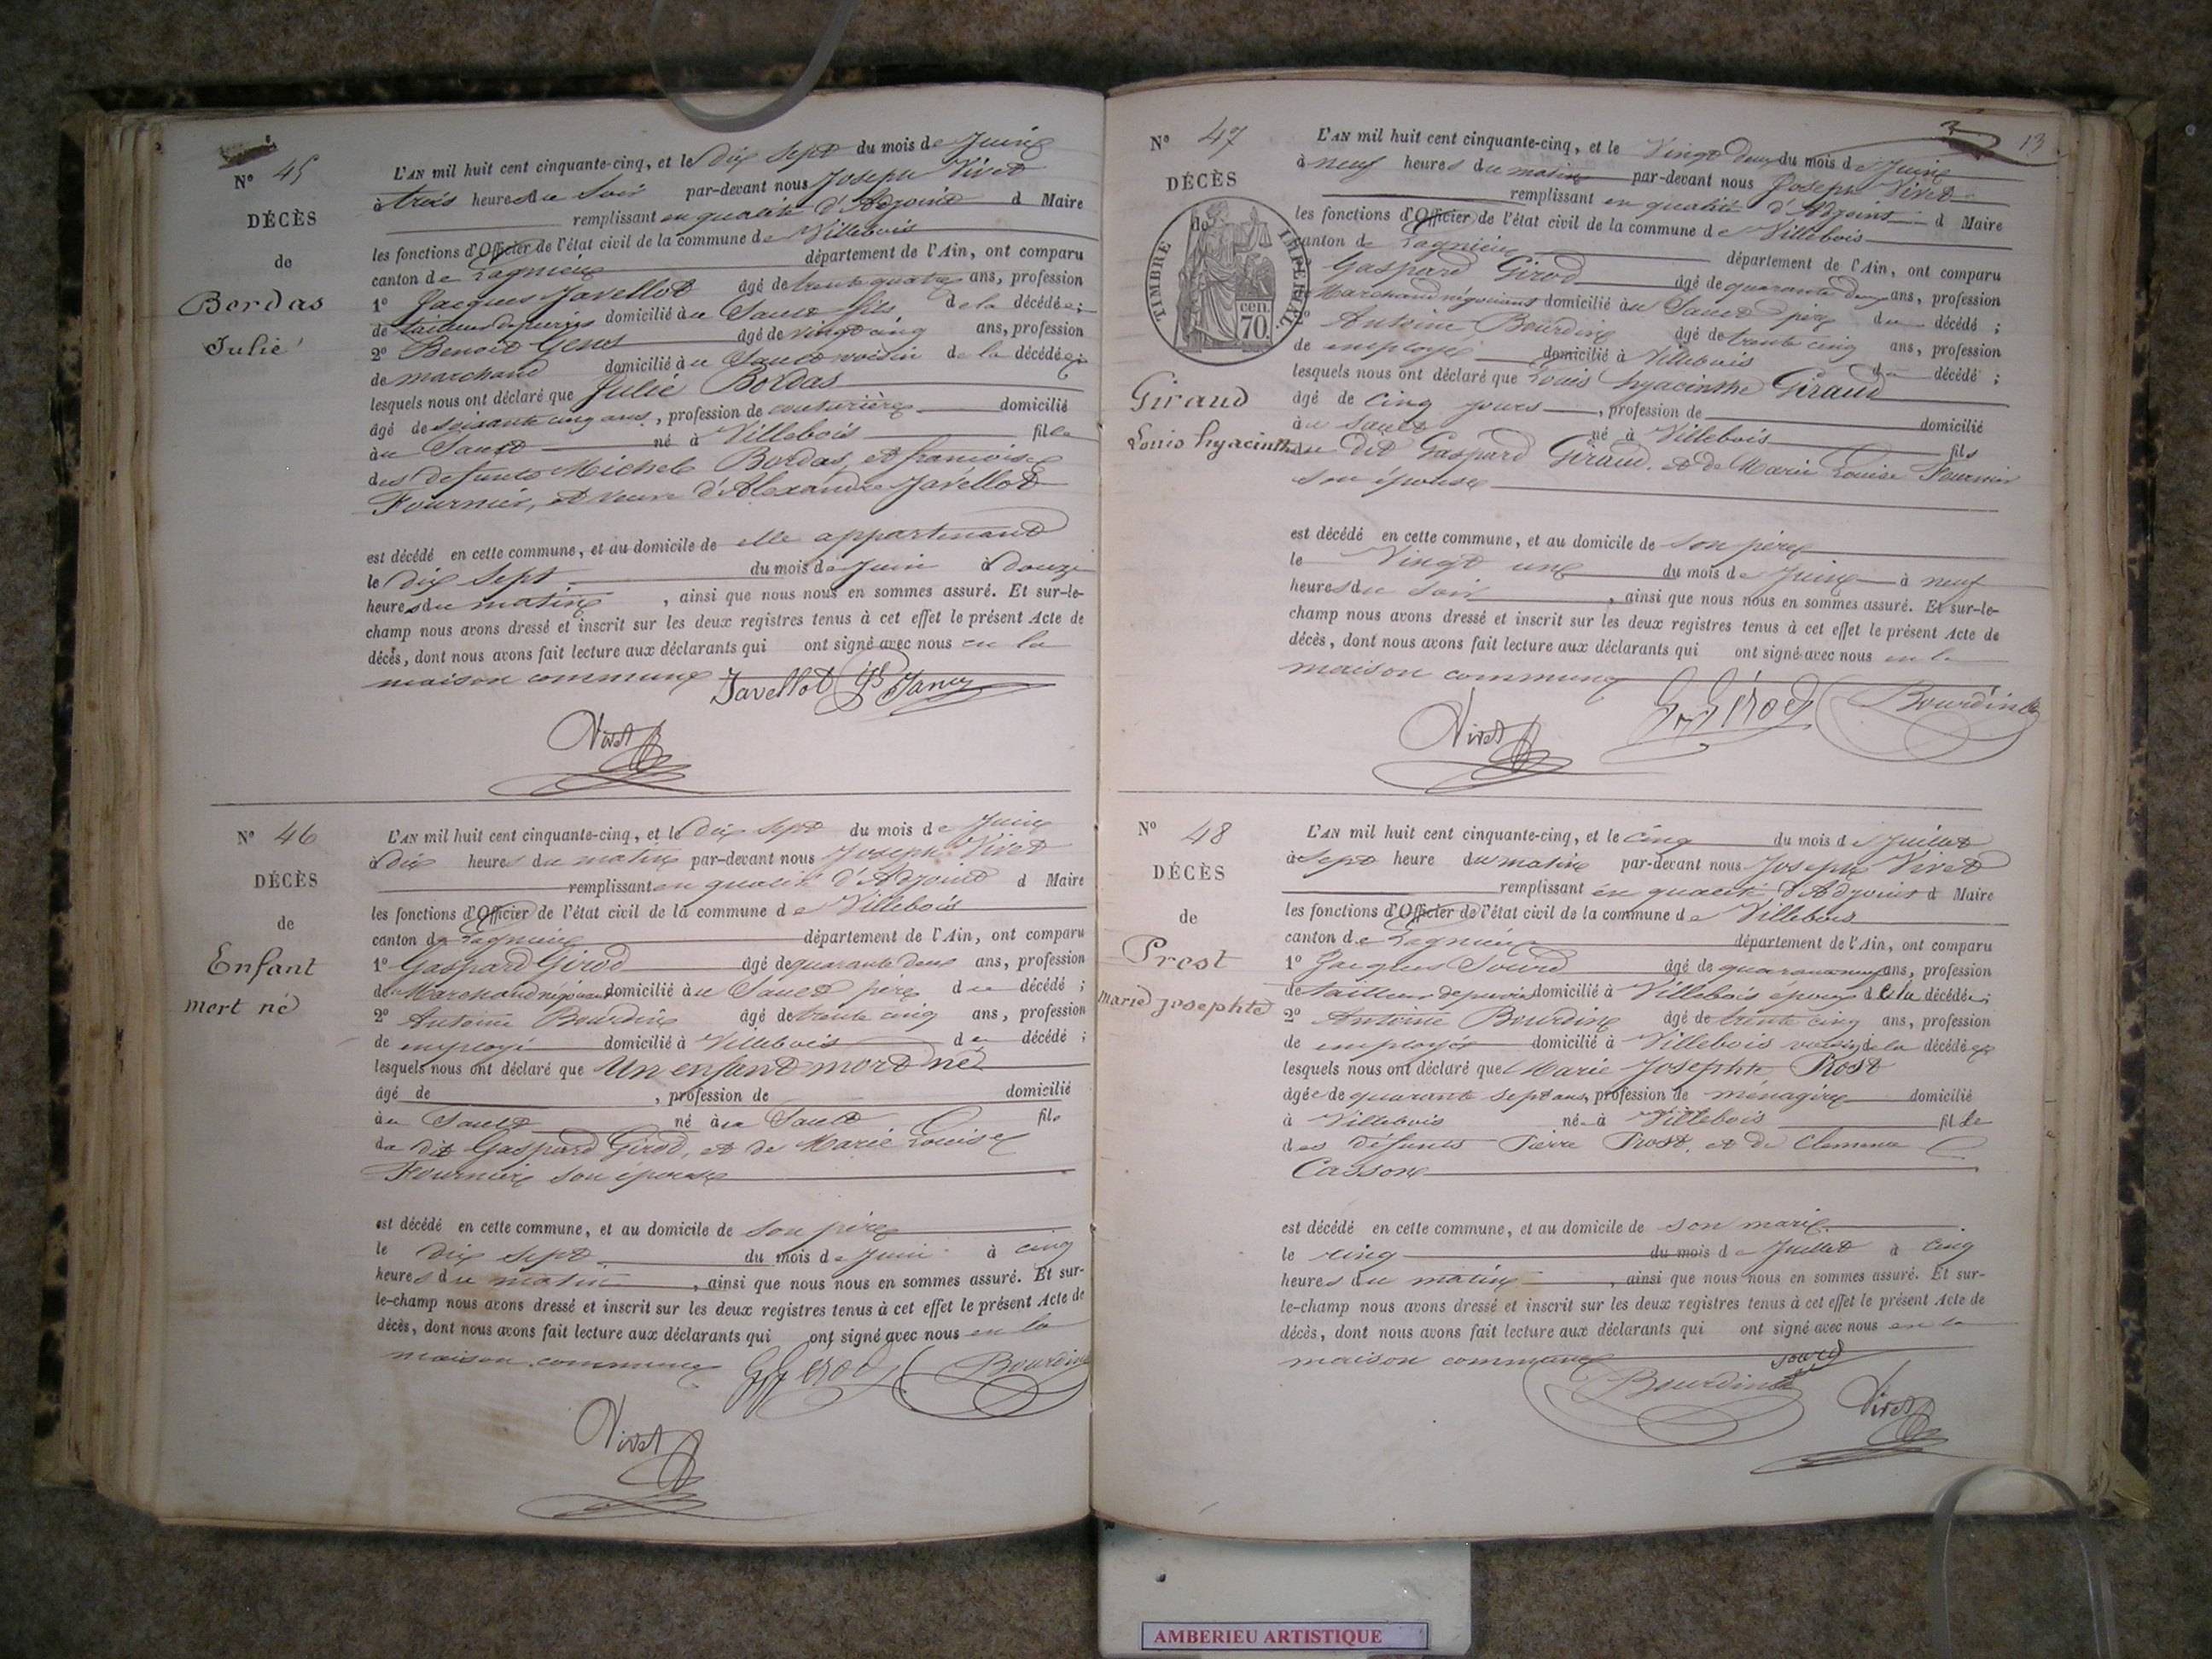 Nº 45
DÉCÈS
de
Bordas
Julie
L'AN mil huit cent cinquante-cinq, et le dix sept du mois de Juin
à trois heures du Soir par-devant nous Joseph Vivet
remplissant en qualité d'Adjoint d Maire
les fonctions d'Officier de l'état civil de la commune de Villebois
canton de Lagnieu département de l'Ain, ont comparu
1º Jacques Javellot âgé de trente quatre ans, profession
de tailleur de pierres domicilié au Sault fils de la décédée;
2º Benoit Genis âgé de vingt cinq ans, profession
de marchand domicilié au Sault voisin de la décédée;
lesquels nous ont déclaré que Julie Bordas
âgé de soixante cinq ans, profession de couturière domicilié
au Sault né à Villebois fille
des defunts Michel Bordas, et francoise
Fournier, et veuve d'Alexandre Javellot
est décédé en cette commune, et au domicile de elle appartenant
le dix Sept du mois de Juin à douze
heures du matin, ainsi que nous nous en sommes assuré. Et sur-le-
champ nous avons dressé et inscrit sur les deux registres tenus à cet effet le présent Acte de
décès, dont nous avons fait lecture aux déclarants qui ont signé avec nous en la
maison commune Javellot
Vivet
Nº 46
DÉCÈS
de
Enfant
mort né
L'AN mil huit cent cinquante-cinq, et le dix sept du mois de Juin
à dix heures du matin par-devant nous Joseph Vivet
remplissant en qualité d'Adjoint d Maire
les fonctions d'Officier de l'état civil de la commune de Villebois
canton de Lagnieu département de l'Ain, ont comparu
1º Gaspard Girod âgé de quarante deux ans, profession
de Marchand négociant domicilié au Sault père du décédé;
2º Antoine Bourdin âgé de trente cinq ans, profession
de employé domicilié à Villebois d décédé;
lesquels nous ont déclaré que Un enfant mort né
âgé de , profession de domicilié
au Sault né au Sault fils
du dit Gaspard Girod, et de Marie Louise
Fournier son épouse
est décédé en cette commune, et au domicile de son père
le dix sept du mois de Juin à cinq
heures du matin, ainsi que nous nous en sommes assuré. Et sur-
le-champ nous avons dressé et inscrit sur les deux registres tenus à cet effet le présent Acte de
décès, dont nous avons fait lecture aux déclarants qui ont signé avec nous en la
maison commune G Girod Bourdin
Vivet
13
Nº 47
DÉCÈS
de
TIMBRE IMPÉRIAL
70 cen.
Giraud
Louis hyacinthe
L'AN mil huit cent cinquante-cinq, et le Vingt deux du mois de Juin
à neuf heures du matin par-devant nous Joseph Vivet
remplissant en qualité d'Adjoint d Maire
les fonctions d'Officier de l'état civil de la commune de Villebois
canton de Lagnieu département de l'Ain, ont comparu
Gaspard Girod âgé de quarante deux ans, profession
de Marchand négociant domicilié au Sault père du décédé;
2º Antoine Bourdin âgé de trente cinq ans, profession
de employé domicilié à Villebois d décédé;
lesquels nous ont déclaré que Louis hyacinthe Giraud
âgé de cinq jours, profession de domicilié
au Sault né à Villebois fils
du dit Gaspard Giraud, et de Marie Louise Fournier
son épouse
est décédé en cette commune, et au domicile de son père
le Vingt un du mois de Juin à neuf
heures du soir, ainsi que nous nous en sommes assuré. Et sur-le-
champ nous avons dressé et inscrit sur les deux registres tenus à cet effet le présent Acte de
décès, dont nous avons fait lecture aux déclarants qui ont signé avec nous en la
maison commune G Girod Bourdin
Vivet
Nº 48
DÉCÈS
de
Prost
marie josephte
L'AN mil huit cent cinquante-cinq, et le cinq du mois de Juillet
à sept heure du matin par-devant nous Joseph Vivet
remplissant en qualité d'Adjoint d Maire
les fonctions d'Officier de l'état civil de la commune de Villebois
canton de Lagnieu département de l'Ain, ont comparu
1º Jacques Sourd âgé de quarante neuf ans, profession
de tailleur de pierre domicilié à Villebois époux de la décédée;
2º Antoine Bourdin âgé de trente cinq ans, profession
de employé domicilié à Villebois voisin de la décédée
lesquels nous ont déclaré que Marie Josephte Prost
âgée de quarante sept ans, profession de ménagère domicilié
à Villebois née à Villebois fille
des défunts Pierre Prost, et de Clemence
Casson
est décédé en cette commune, et au domicile de son mari
le cinq du mois de Juillet à cinq
heures du matin, ainsi que nous nous en sommes assuré. Et sur-
le-champ nous avons dressé et inscrit sur les deux registres tenus à cet effet le présent Acte de
décès, dont nous avons fait lecture aux déclarants qui ont signé avec nous en la
maison commune Sourd
Bourdin Vivet
AMBERIEU ARTISTIQUE